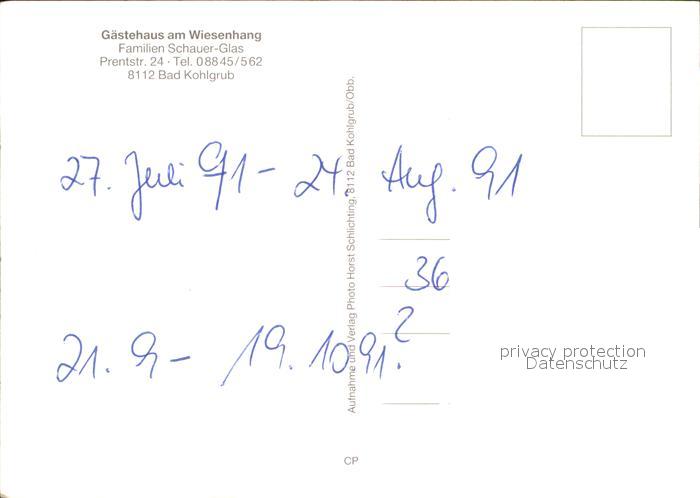 Gästehaus am Wiesenhang
Familien Schauer-Glas
Prentstr. 24 · Tel. 08845/562
8112 Bad Kohlgrub
Aufnahme und Verlag Photo Horst Schlichting, 8112 Bad Kohlgrub/Obb.
27. Juli 91 – 24. Aug. 91
36
21. 9 – 19. 10 91. ?
privacy protection
Datenschutz
CP